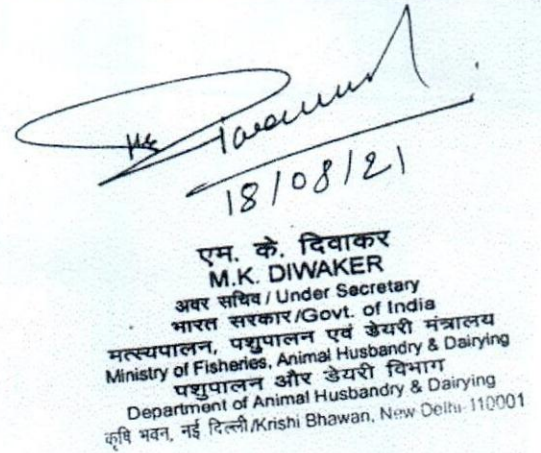 18/08/21
एम. के. दिवाकर
M.K. DIWAKER
अवर सचिव / Under Secretary
भारत सरकार /Govt. of India
मत्स्यपालन, पशुपालन एवं डेयरी मंत्रालय
Ministry of Fisheries, Animal Husbandry & Dairying
पशुपालन और डेयरी विभाग
Department of Animal Husbandry & Dairying
कृषि भवन, नई दिल्ली/Krishi Bhawan, New Delhi-110001